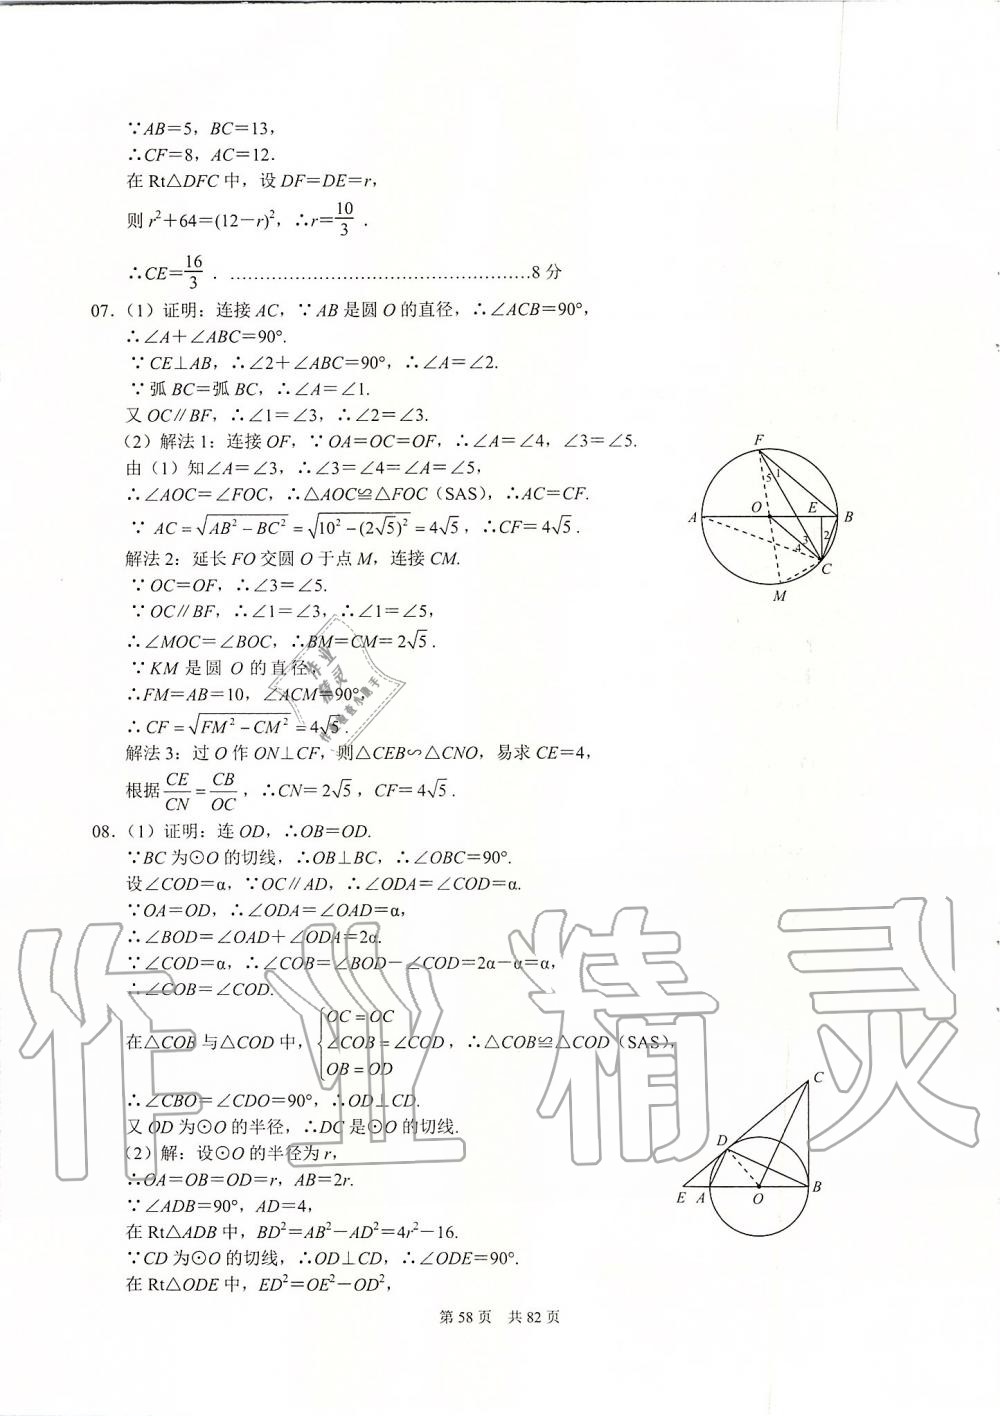 ∵AB=5，BC=13，
∴CF=8，AC=12．
在 Rt△DFC 中，设 DF=DE=r，
则 r²+64=(12－r)²，∴r=10/3 ．
∴CE=16/3 ．……………………………………………8 分
07．（1）证明：连接 AC，∵AB 是圆 O 的直径，∴∠ACB=90°，
∴∠A＋∠ABC=90°.
∵CE⊥AB，∴∠2＋∠ABC=90°，∴∠A=∠2.
∵弧 BC=弧 BC，∴∠A=∠1.
又 OC∥BF，∴∠1=∠3，∴∠2=∠3.
（2）解法 1：连接 OF，∵OA=OC=OF，∴∠A=∠4，∠3=∠5.
由（1）知∠A=∠3，∴∠3=∠4=∠A=∠5，
∴∠AOC=∠FOC，∴△AOC≌△FOC（SAS），∴AC=CF.
∵ AC=√(AB²－BC²)=√(10²－(2√5)²)=4√5，∴CF=4√5 .
解法 2：延长 FO 交圆 O 于点 M，连接 CM.
∵OC=OF，∴∠3=∠5.
∵OC∥BF，∴∠1=∠3，∴∠1=∠5，
∴∠MOC=∠BOC，∴BM=CM=2√5 .
∵KM 是圆 O 的直径，
∴FM=AB=10，∠ACM=90°，
∴CF=√(FM²－CM²)=4√5 .
解法 3：过 O 作 ON⊥CF，则△CEB∽△CNO，易求 CE=4，
根据CE/CN=CB/OC，∴CN=2√5，CF=4√5 .
08．（1）证明：连 OD，∴OB=OD.
∵BC 为⊙O 的切线，∴OB⊥BC，∴∠OBC=90°.
设∠COD=α，∵OC∥AD，∴∠ODA=∠COD=α.
∵OA=OD，∴∠ODA=∠OAD=α，
∴∠BOD=∠OAD＋∠ODA=2α.
∵∠COD=α，∴∠COB=∠BOD－∠COD=2α－α=α，
∴∠COB=∠COD.
在△COB 与△COD 中，{OC=OC ∠COB=∠COD OB=OD，∴△COB≌△COD（SAS），
∴∠CBO=∠CDO=90°，∴OD⊥CD.
又 OD 为⊙O 的半径，∴DC 是⊙O 的切线.
（2）解：设⊙O 的半径为 r，
∴OA=OB=OD=r，AB=2r.
∵∠ADB=90°，AD=4，
在 Rt△ADB 中，BD²=AB²－AD²=4r²－16.
∵CD 为⊙O 的切线，∴OD⊥CD，∴∠ODE=90°.
在 Rt△ODE 中，ED²=OE²－OD²，
第 58 页 共 82 页
F
5 1
A O E B
3 2
4
C
M
C
D
E A O B
作业精灵
作业精灵